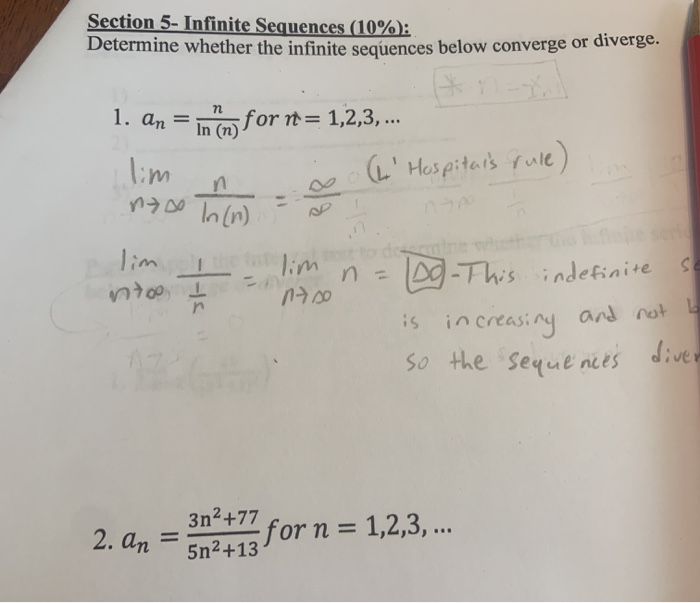 Section 5- Infinite Sequences (10%):
Determine whether the infinite sequences below converge or diverge.
1. aₙ = n/ln (n) for n = 1,2,3, ...
lim n→∞ n/ln(n) = ∞/∞ (L' Hospital's rule)
lim n→∞ 1/(1/n) = lim n→∞ n = ∞ - This indefinite
is increasing and not
so the sequences
2. aₙ = (3n²+77)/(5n²+13) for n = 1,2,3, ...